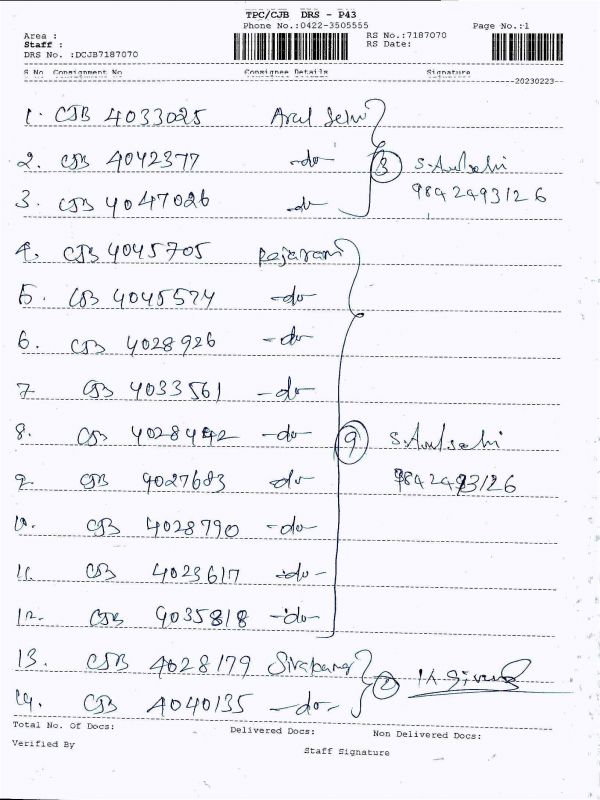 TPC/CJB DRS - P43
Phone No.:0422-3505555
Page No.:1
Area :
Staff :
DRS No. :DCJB7187070
RS No.:7187070
RS Date:
S No Consignment No Consignee Details Signature
20230223
1. CJB 4033025 Arul Selvi
2. CJB 4042377 -do-
3. CJB 4047026 -do-
3 S. Arulselvi
9842493126
4. CJB 4045705 Rajaram
5. CJB 4045574 -do-
6. CJB 4028926 -do-
7. CJB 4033561 -do-
8. CJB 4028442 -do-
9 S. Arulselvi
9. CJB 4027683 -do-
9842493126
10. CJB 4028790 -do-
11. CJB 4023617 -do-
12. CJB 4035818 -do-
13. CJB 4028179
2
14. CJB 4040135 -do-
Total No. Of Docs: Delivered Docs: Non Delivered Docs:
Verified By Staff Signature